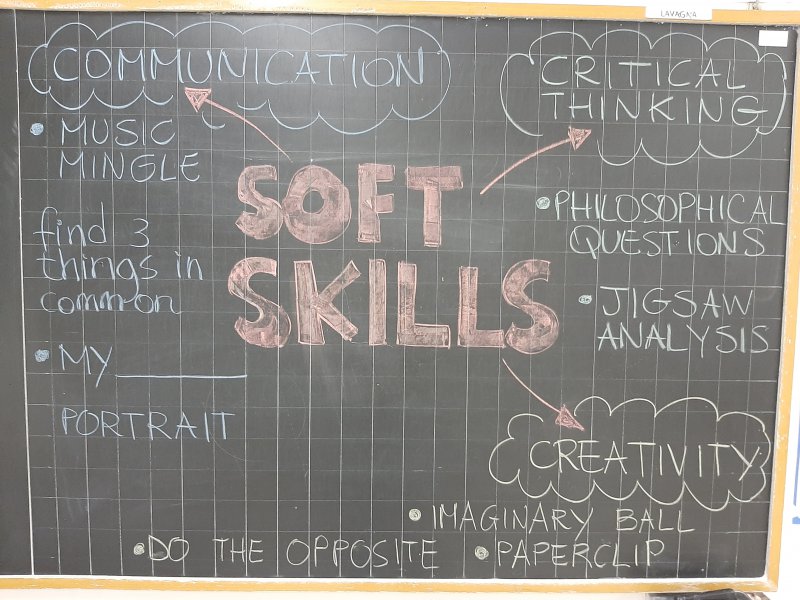 LAVAGNA
COMMUNICATION
• MUSIC
MINGLE
find 3
things in
common
• MY ________
PORTRAIT
SOFT
SKILLS
CRITICAL
THINKING
• PHILOSOPHICAL
QUESTIONS
• JIGSAW
ANALYSIS
CREATIVITY
• IMAGINARY BALL
• DO THE OPPOSITE • PAPERCLIP